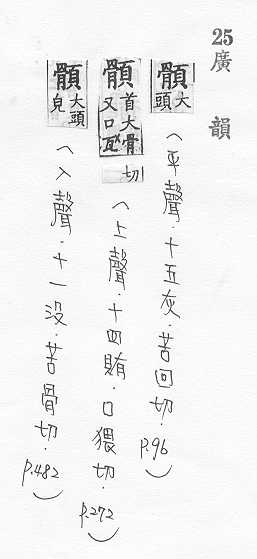 25廣韻
顝大頭(平聲.十五灰.苦回切.p.96)
顝首大骨又口瓦切(上聲.十四賄.口猥切.p.272)
顝大頭皃(入聲.十一没.苦骨切.p.482)